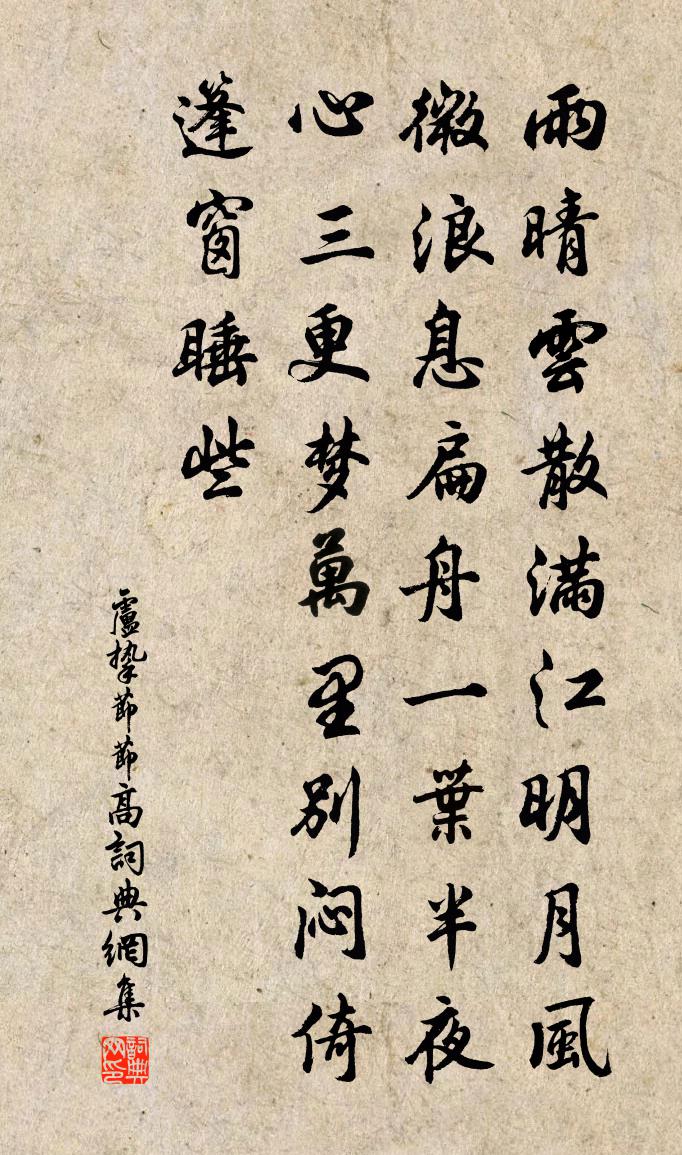 雨晴雲散滿江明月風
微浪息扁舟一葉半夜
心三更梦萬里別闷倚
篷窗睡些
盧摯節節高詞典網集
詞典网印